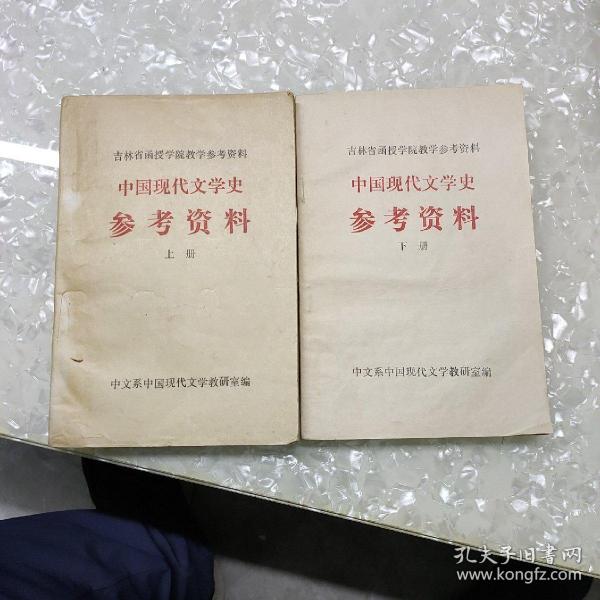 吉林省函授学院教学参考资料
中国现代文学史
参考资料
上册
中文系中国现代文学教研室编
吉林省函授学院教学参考资料
中国现代文学史
参考资料
下册
中文系中国现代文学教研室编
孔夫子旧书网
www.kongfz.com